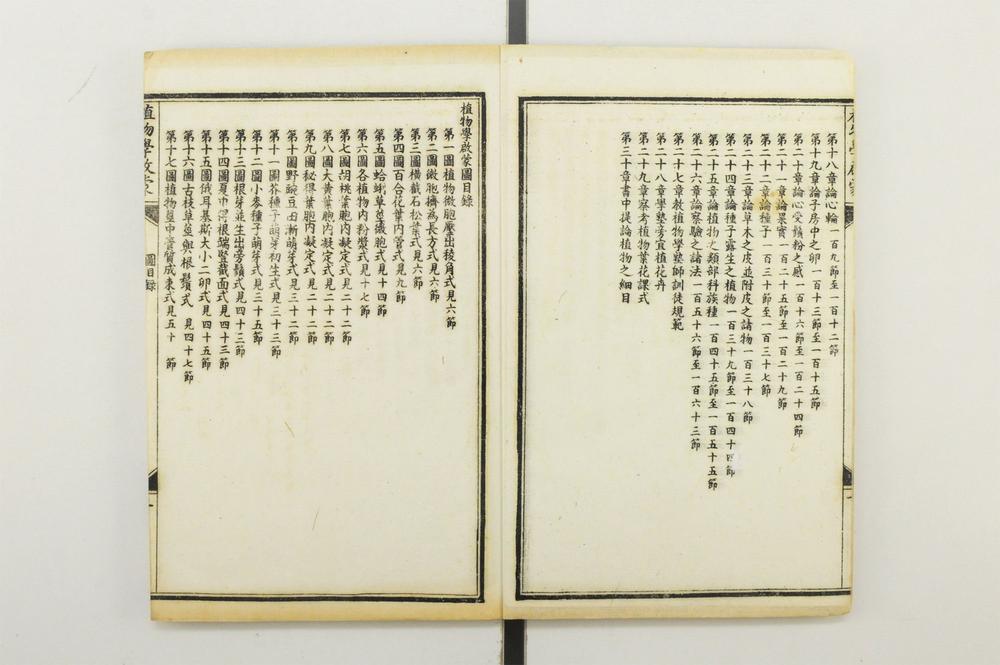 第十八章論心輪一百九節至一百十二節
第十九章論子房中之卵一百十三節至一百十五節
第二十章論心受鬚粉之感一百十六節至一百二十四節
第二十一章論果實一百二十五節至一百二十九節
第二十二章論種子一百三十節至一百三十七節
第二十三章論草木之皮並附皮之諸物一百三十八節
第二十四章論種子露生之植物一百三十九節至一百四十四節
第二十五章論植物之類部科族種一百四十五節至一百五十五節
第二十六章論察驗之諸法一百五十六節至一百六十三節
第二十七章教植物學塾師訓徒規範
第二十八章學塾旁宜植花卉
第二十九章察考植物葉花課式
第三十章書中提論植物之細目
植物學啟蒙圖目錄
第一圖植物微胞壓出稜角式見六節
第二圖微胞擠為長方式見六節
第三圖橫截石松葉式見六節
第四圖百合花葉內管式見九節
第五圖蛤蜊草莖微胞式見十四節
第六圖各植物內粉漿式見十七節
第七圖胡桃葉胞內凝定式見二十二節
第八圖大黃葉胞內凝定式見二十二節
第九圖秘得葉胞內凝定式見二十二節
第十圖野豌豆田漸萌芽式見三十二節
第十一圖芥種子萌芽初生式見三十三節
第十二圖小麥種子萌芽式見三十五節
第十三圖根芽並生出旁鬚式見四十三節
第十四圖夏中得根端豎截面式見四十三節
第十五圖俄耳基斯大小二卵式見四十五節
第十六圖古枝草莖與根鬚式 見四十七節
第十七圖植物莖中管質成束式見五十 節
植物學啟蒙
圖目錄
一